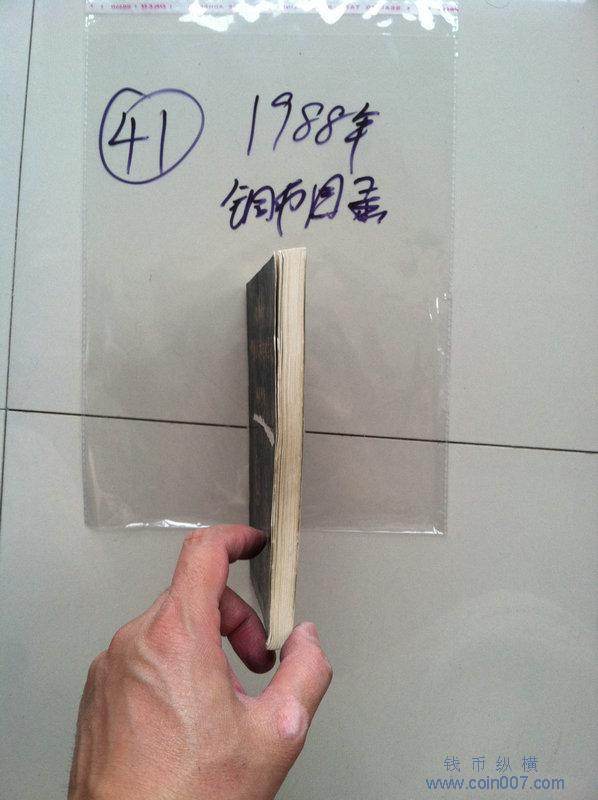 41
1988年
铜币目录
钱币纵横
www.coin007.com